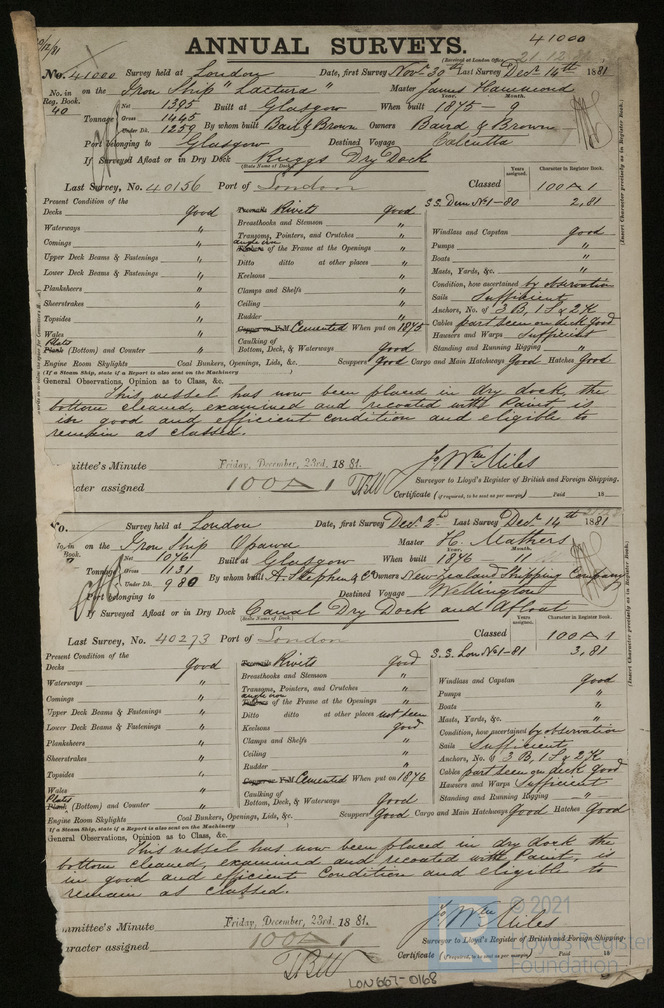 41000
ANNUAL SURVEYS.
(Received at London Office 21/12
No. 41000 Survey held at London Date, first Survey Novr. 30th Last Survey Decr. 14th 1881
No. in Reg. Book. 40 on the Iron Ship "Lactura" Master James Hammond
Tonnage Net 1395 Built at Glasgow When built Year. 1875 - Month. 9
Gross 1445
Under Dk. 1259 By whom built Bail & Brown Owners Baird & Brown
Port belonging to Glasgow Destined Voyage Calcutta
If Surveyed Afloat or in Dry Dock Ruggs Dry Dock
(State Name of Dock.)
Last Survey, No. 40156 Port of London Classed
Years assigned. Character in Register Book.
100 A 1
S.S. Dun No 1-80 2,81
(Insert Character precisely as in Register Book.)
Present Condition of the
Decks good
Waterways "
Comings "
Upper Deck Beams & Fastenings "
Lower Deck Beams & Fastenings "
Planksheers "
Sheerstrakes "
Topsides "
Wales "
Plates
Plank (Bottom) and Counter "
Treenails Rivets good
Breasthooks and Stemson "
Transoms, Pointers, and Crutches "
angle iron
of the Frame at the Openings "
Ditto ditto at other places "
Keelsons "
Clamps and Shelfs "
Ceiling "
Rudder "
Copper or Y.M Cemented When put on 1875
Caulking of
Bottom, Deck, & Waterways good
Windlass and Capstan good
Pumps "
Boats "
Masts, Yards, &c. "
Condition, how ascertained by observation
Sails Sufficient
Anchors, No. of 3 B, 1 S & 2 K
Cables part seen on deck good
Hawsers and Warps Sufficient
Standing and Running Rigging "
Engine Room Skylights Coal Bunkers, Openings, Lids, &c. Scuppers Good Cargo and Main Hatchways Good Hatches Good
(If a Steam Ship, state if a Report is also sent on the Machinery )
General Observations, Opinion as to Class, &c.
This vessel has now been placed in dry dock, the
bottom cleaned, examined and recoated with Paint is
in good and efficient condition and eligible to
remain as classed.
mmittee's Minute Friday, December, 23rd. 1881.
racter assigned 100 A 1
Jo Wm Miles
Surveyor to Lloyd's Register of British and Foreign Shipping.
Certificate (if required, to be sent as per margin) Paid 18
No. Survey held at London Date, first Survey Decr. 2nd Last Survey Decr. 14th 1881
No. in Book. on the Iron Ship Opawa Master H. Mathers
Tonnage Net 1076 Built at Glasgow When built Year. 1876 Month. 11
Gross 1131
Under Dk. 980 By whom built A. Stephen & Co Owners New Zealand Shipping Company
Port belonging to Destined Voyage Wellington
If Surveyed Afloat or in Dry Dock Canal Dry Dock and Afloat
(State Name of Dock.)
Last Survey, No. 40273 Port of London Classed
Years assigned. Character in Register Book.
100 A 1
S.S. Lon No 1-81 3,81
(Insert Character precisely as in Register Book.)
Present Condition of the
Decks good
Waterways "
Comings "
Upper Deck Beams & Fastenings "
Lower Deck Beams & Fastenings "
Planksheers "
Sheerstrakes "
Topsides "
Wales "
Plates
Plank (Bottom) and Counter "
Treenails Rivets good
Breasthooks and Stemson "
Transoms, Pointers, and Crutches "
angle iron
of the Frame at the Openings "
Ditto ditto at other places not seen
Keelsons good
Clamps and Shelfs "
Ceiling "
Rudder "
Copper or Y.M Cemented When put on 1876
Caulking of
Bottom, Deck, & Waterways Good
Windlass and Capstan good
Pumps "
Boats "
Masts, Yards, &c. "
Condition, how ascertained by observation
Sails Sufficient
Anchors, No. of 3 B, 1 S & 2 K
Cables part seen on deck good
Hawsers and Warps Sufficient
Standing and Running Rigging "
Engine Room Skylights Coal Bunkers, Openings, Lids, &c. Scuppers Good Cargo and Main Hatchways Good Hatches Good
(If a Steam Ship, state if a Report is also sent on the Machinery )
General Observations, Opinion as to Class, &c.
This vessel has now been placed in dry dock the
bottom cleaned, examined and recoated with Paint, is
in good and efficient condition and eligible to
remain as classed.
mmittee's Minute Friday, December, 23rd. 1881.
aracter assigned 100 A 1
Jo Wm Miles
Surveyor to Lloyd's Register of British and Foreign Shipping.
Certificate (if required, to be sent as per margin) Paid 18
© 2021
Lloyd's Register
Foundation
LON667-0168